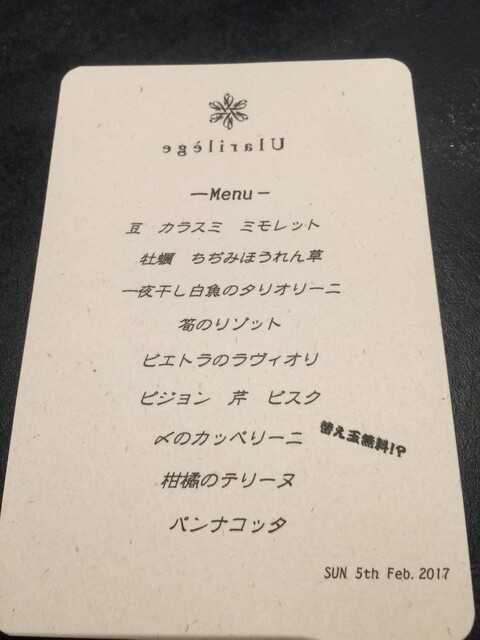 Ularilége
—Menu－
豆　カラスミ　ミモレット
牡蠣　ちぢみほうれん草
一夜干し白魚のタリオリーニ
筍のリゾット
ピエトラのラヴィオリ
ピジョン　芹　ビスク
〆のカッペリーニ 替え玉無料!?
柑橘のテリーヌ
パンナコッタ
SUN 5th Feb.2017